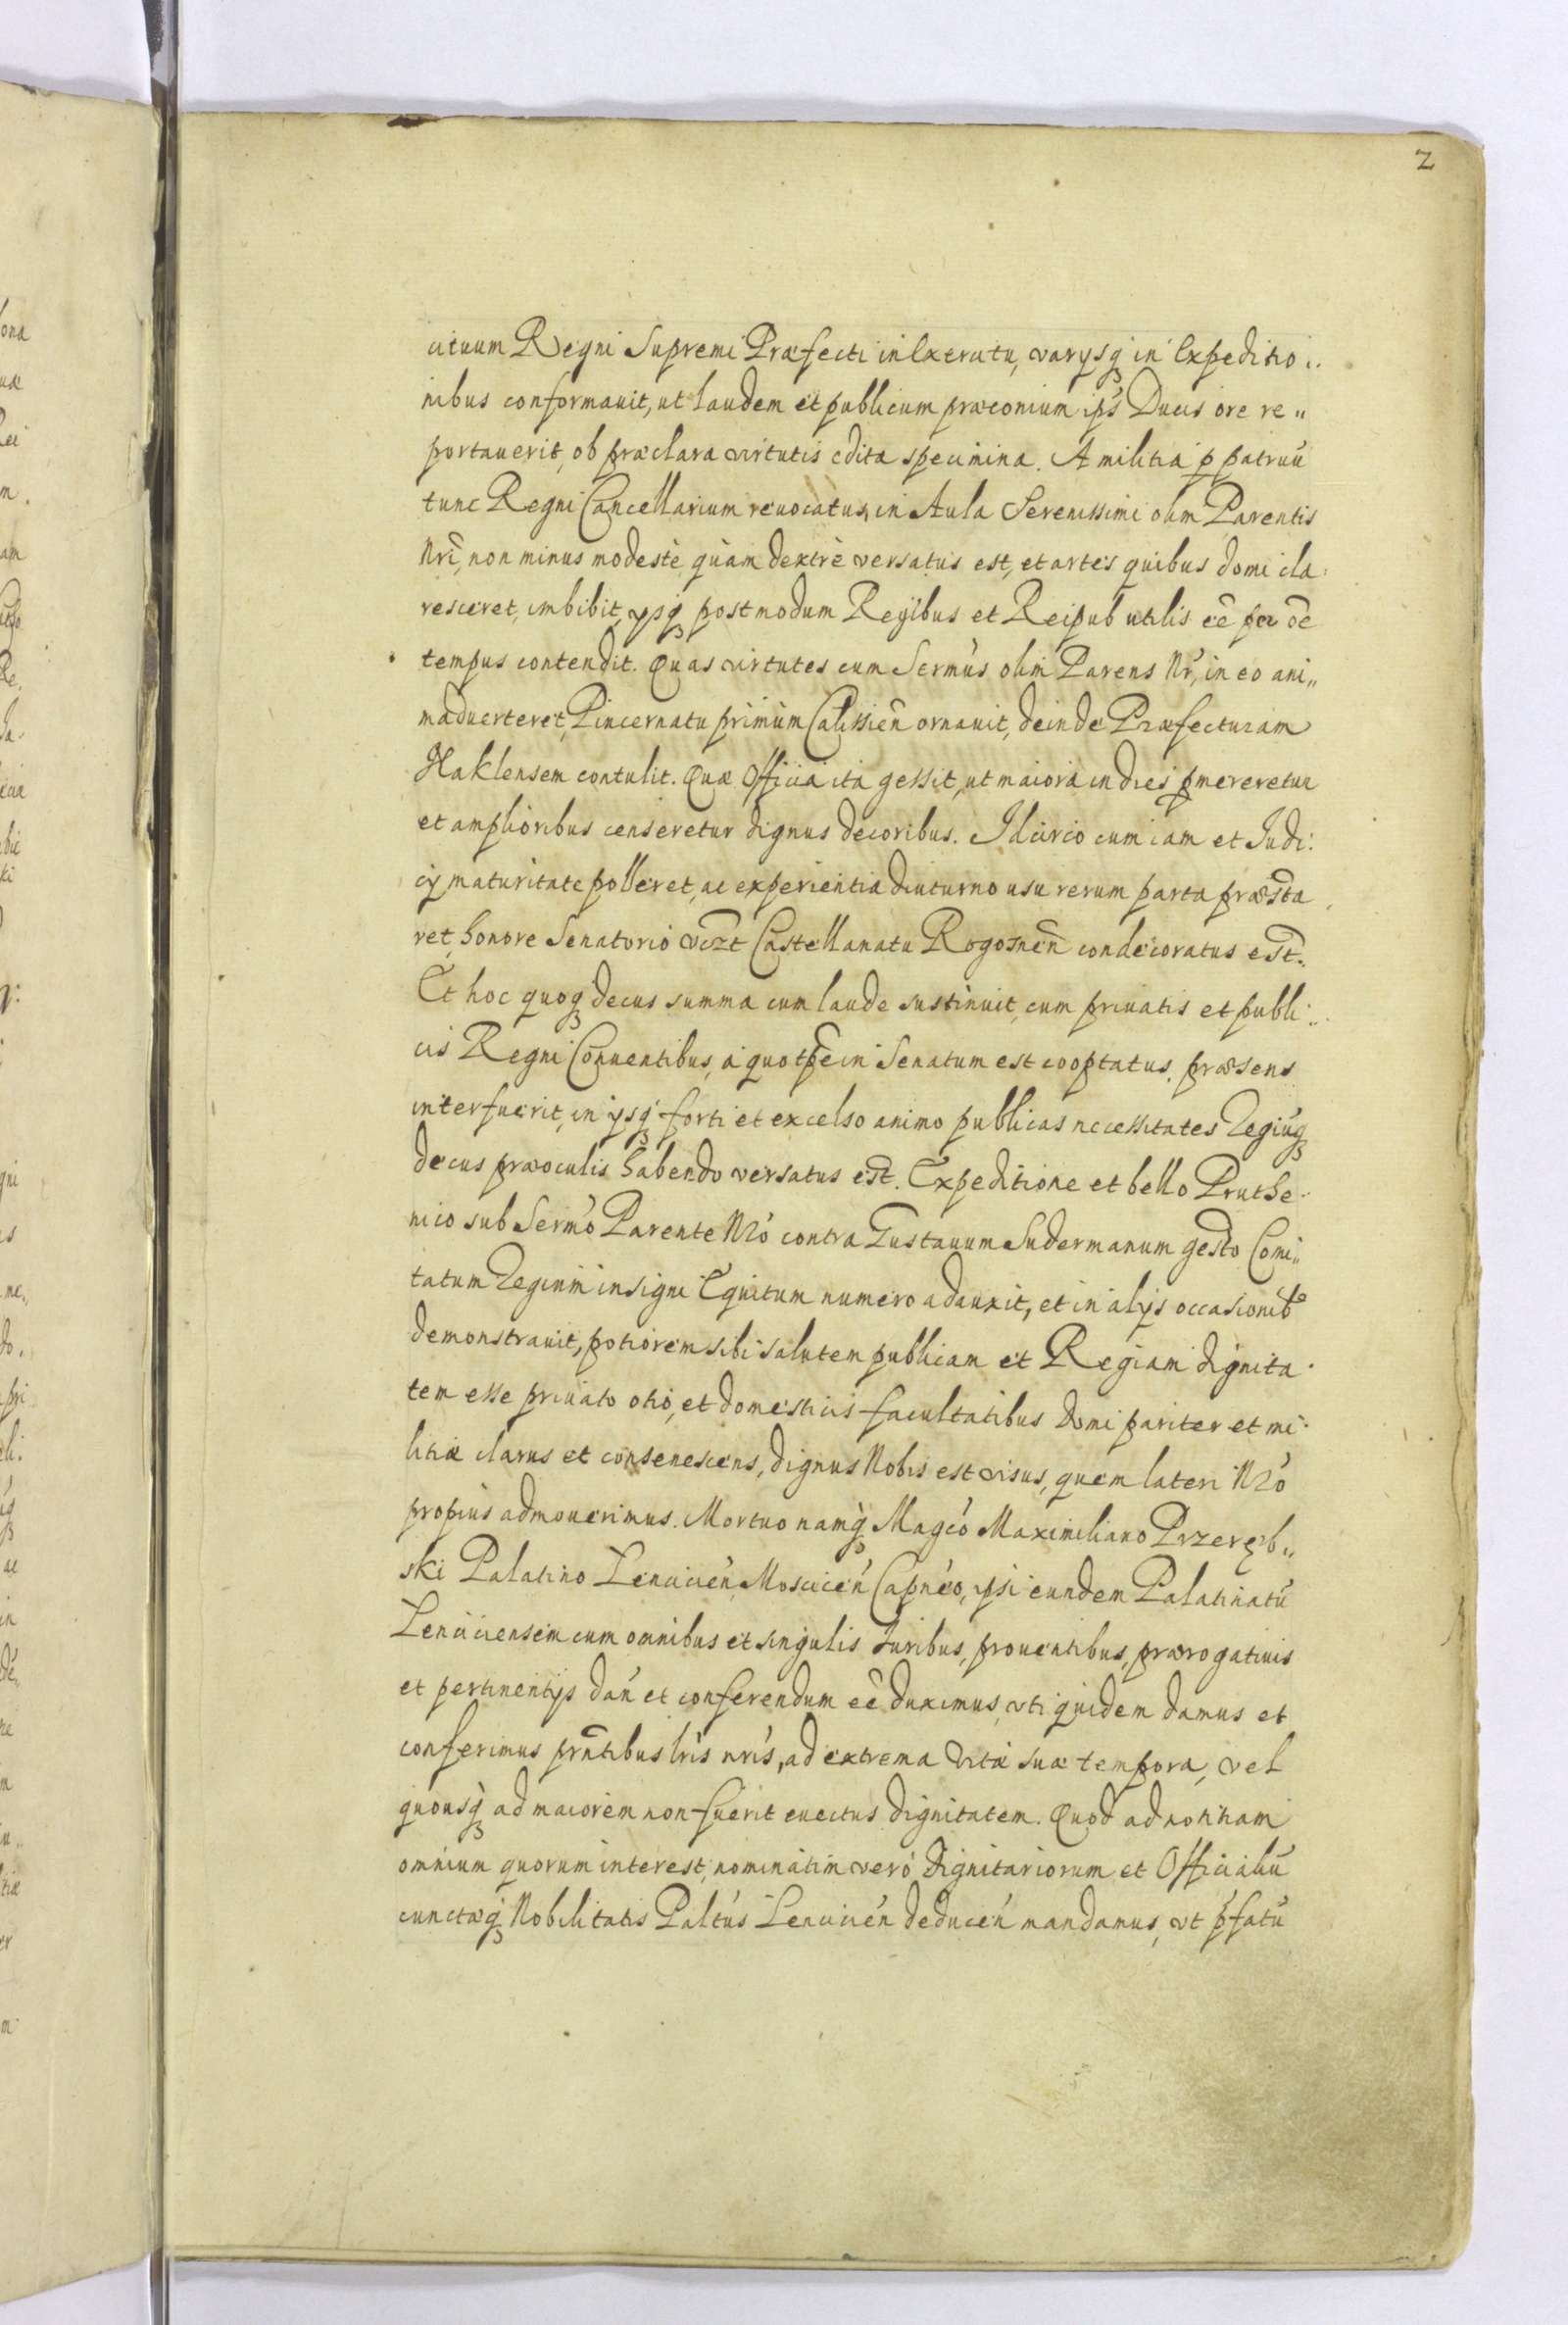 2
cituum Regni Supremi Præfecti in Exercitu, varijsq́ in Expeditio„
nibus conformauit, ut laudem et publicum præconium ips̃ Ducis ore re„
portauerit, ob præclara virtutis edita specimina. A militia p̱ patruũ
tunc Regni Cancellarium reuocatus, in Aula Serenissimi olim Parentis
Nrĩ, non minus modestè quàm dextrè versatus est, et artes quibus domi cla„
resceret, imbibit, ysq́ postmodum Regibus et Reipub utilis eẽ per oẽ
tempus contendit. Quas virtutes cum Sermũs olim Parens Nr̃, in eo ani„
maduerteret, Pincernatu primùm Calissieñ ornauit, deinde Præfecturam
Naklensem contulit. Quæ Officia ita gessit, ut maiora in dies p̱mereretur
et amplioribus censeretur dignus decoribus. Idcirco cum iam et Judi:
cij maturitate polleret, ac experientia diuturno usu rerum parta præsta
ret, honore Senatorio vizt Castellanatu Rogosneñ condecoratus est.
Et hoc quoq́ decus summa cum laude sustinuit, cum priuatis et publi„
cis Regni Conuentibus, a quo tp̃e in Senatum est cooptatus, præsens
interfuerit, in ysq́ forti et excelso animo publicas necessitates Regiũq́
decus præ oculis habendo versatus est. Expeditione et bello Pruthe„
nico sub Sermõ Parente Nrõ contra Gustauum Sudermanum gesto Comi„
tatum Regium insigni Equitum numero adauxit, et in alijs occasionib9
demonstrauit, potiorem sibi salutem publicam et Regiam dignita„
tem esse priuato otio, et domesticis facultatibus domi pariter et mi„
litiæ clarus et consenescens, dignus Nobis est visus, quem lateri Nrõ
propius admouerimus. Mortuo namq́ Magcõ Maximiliano Przeręb„
ski Palatino Lencicieñ, Moscicieñ Capnẽo, ysi eundem Palatinatũ
Lenciciensem cum omnibus et singulis Iuribus, prouentibus, prærogatiuis
et pertinentijs dañ et conferendum eẽ duximus, vti quidem damus et
conferimus prñtibus lrĩs nrĩs, ad extrema vitæ suæ tempora, vel
quousq́ ad maiorem non fuerit euectus dignitatem. Quod ad notitiam
omnium quorum interest, nominatim verò Dignitariorum et Officialiũ
cunctæq́ Nobilitatis Paltũs Lencicieñ deduceñ mandamus, vt p̃fatũ